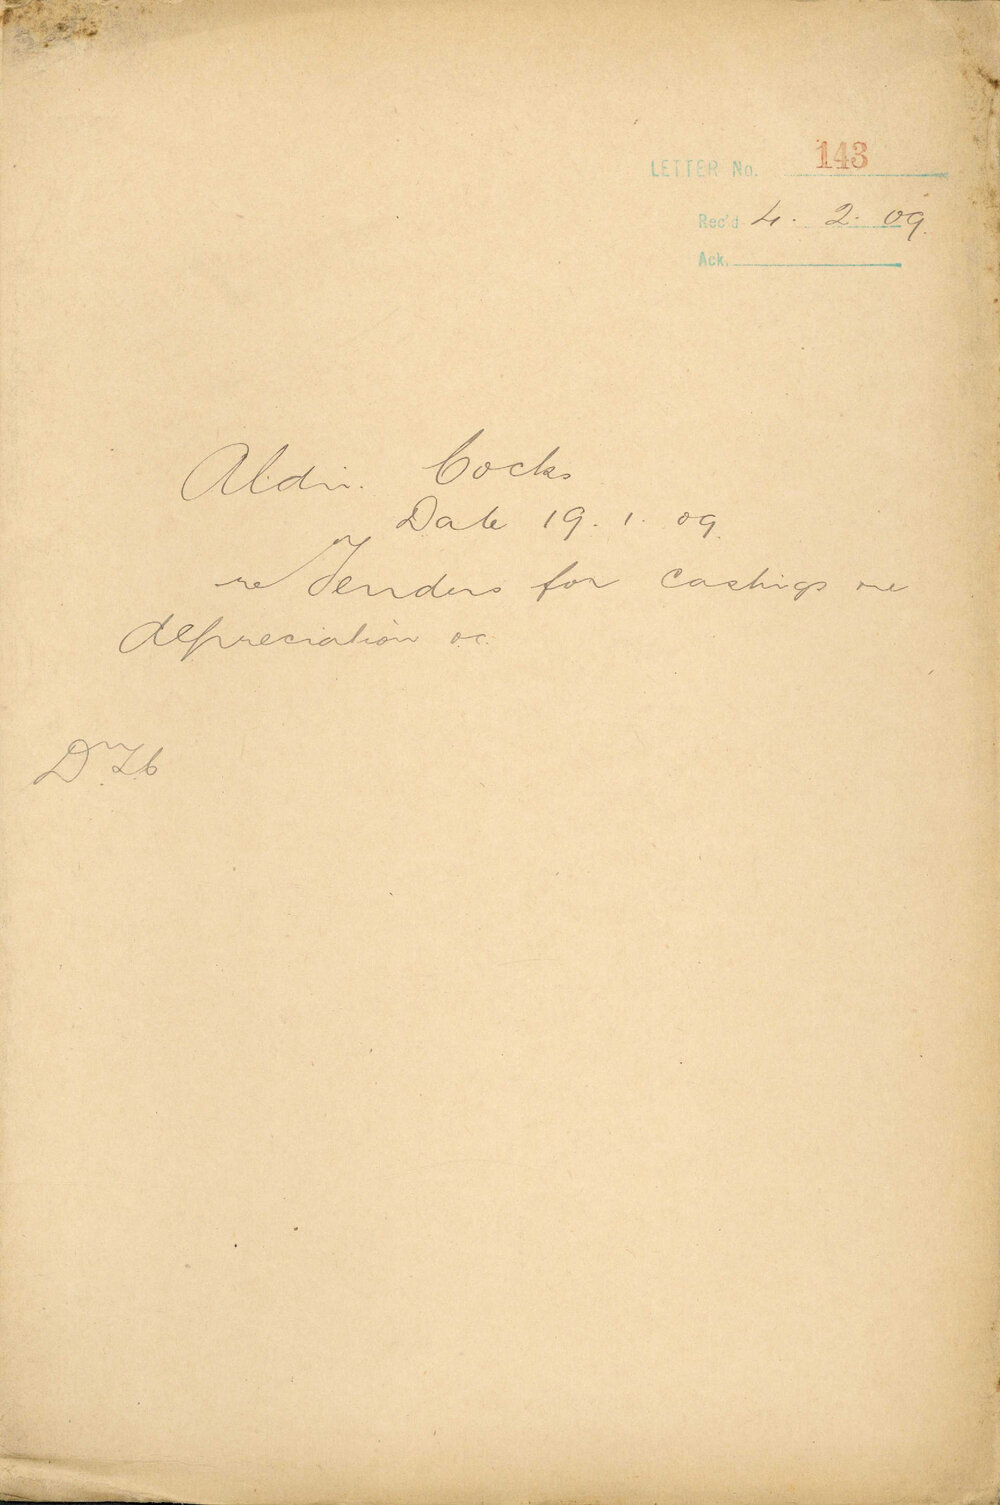 LETTER No. 143
Rec'd 4. 2. 09.
Ack.
Aldn. Cocks
Date 19. 1. 09.
re Tenders for castings re
depreciation &c.